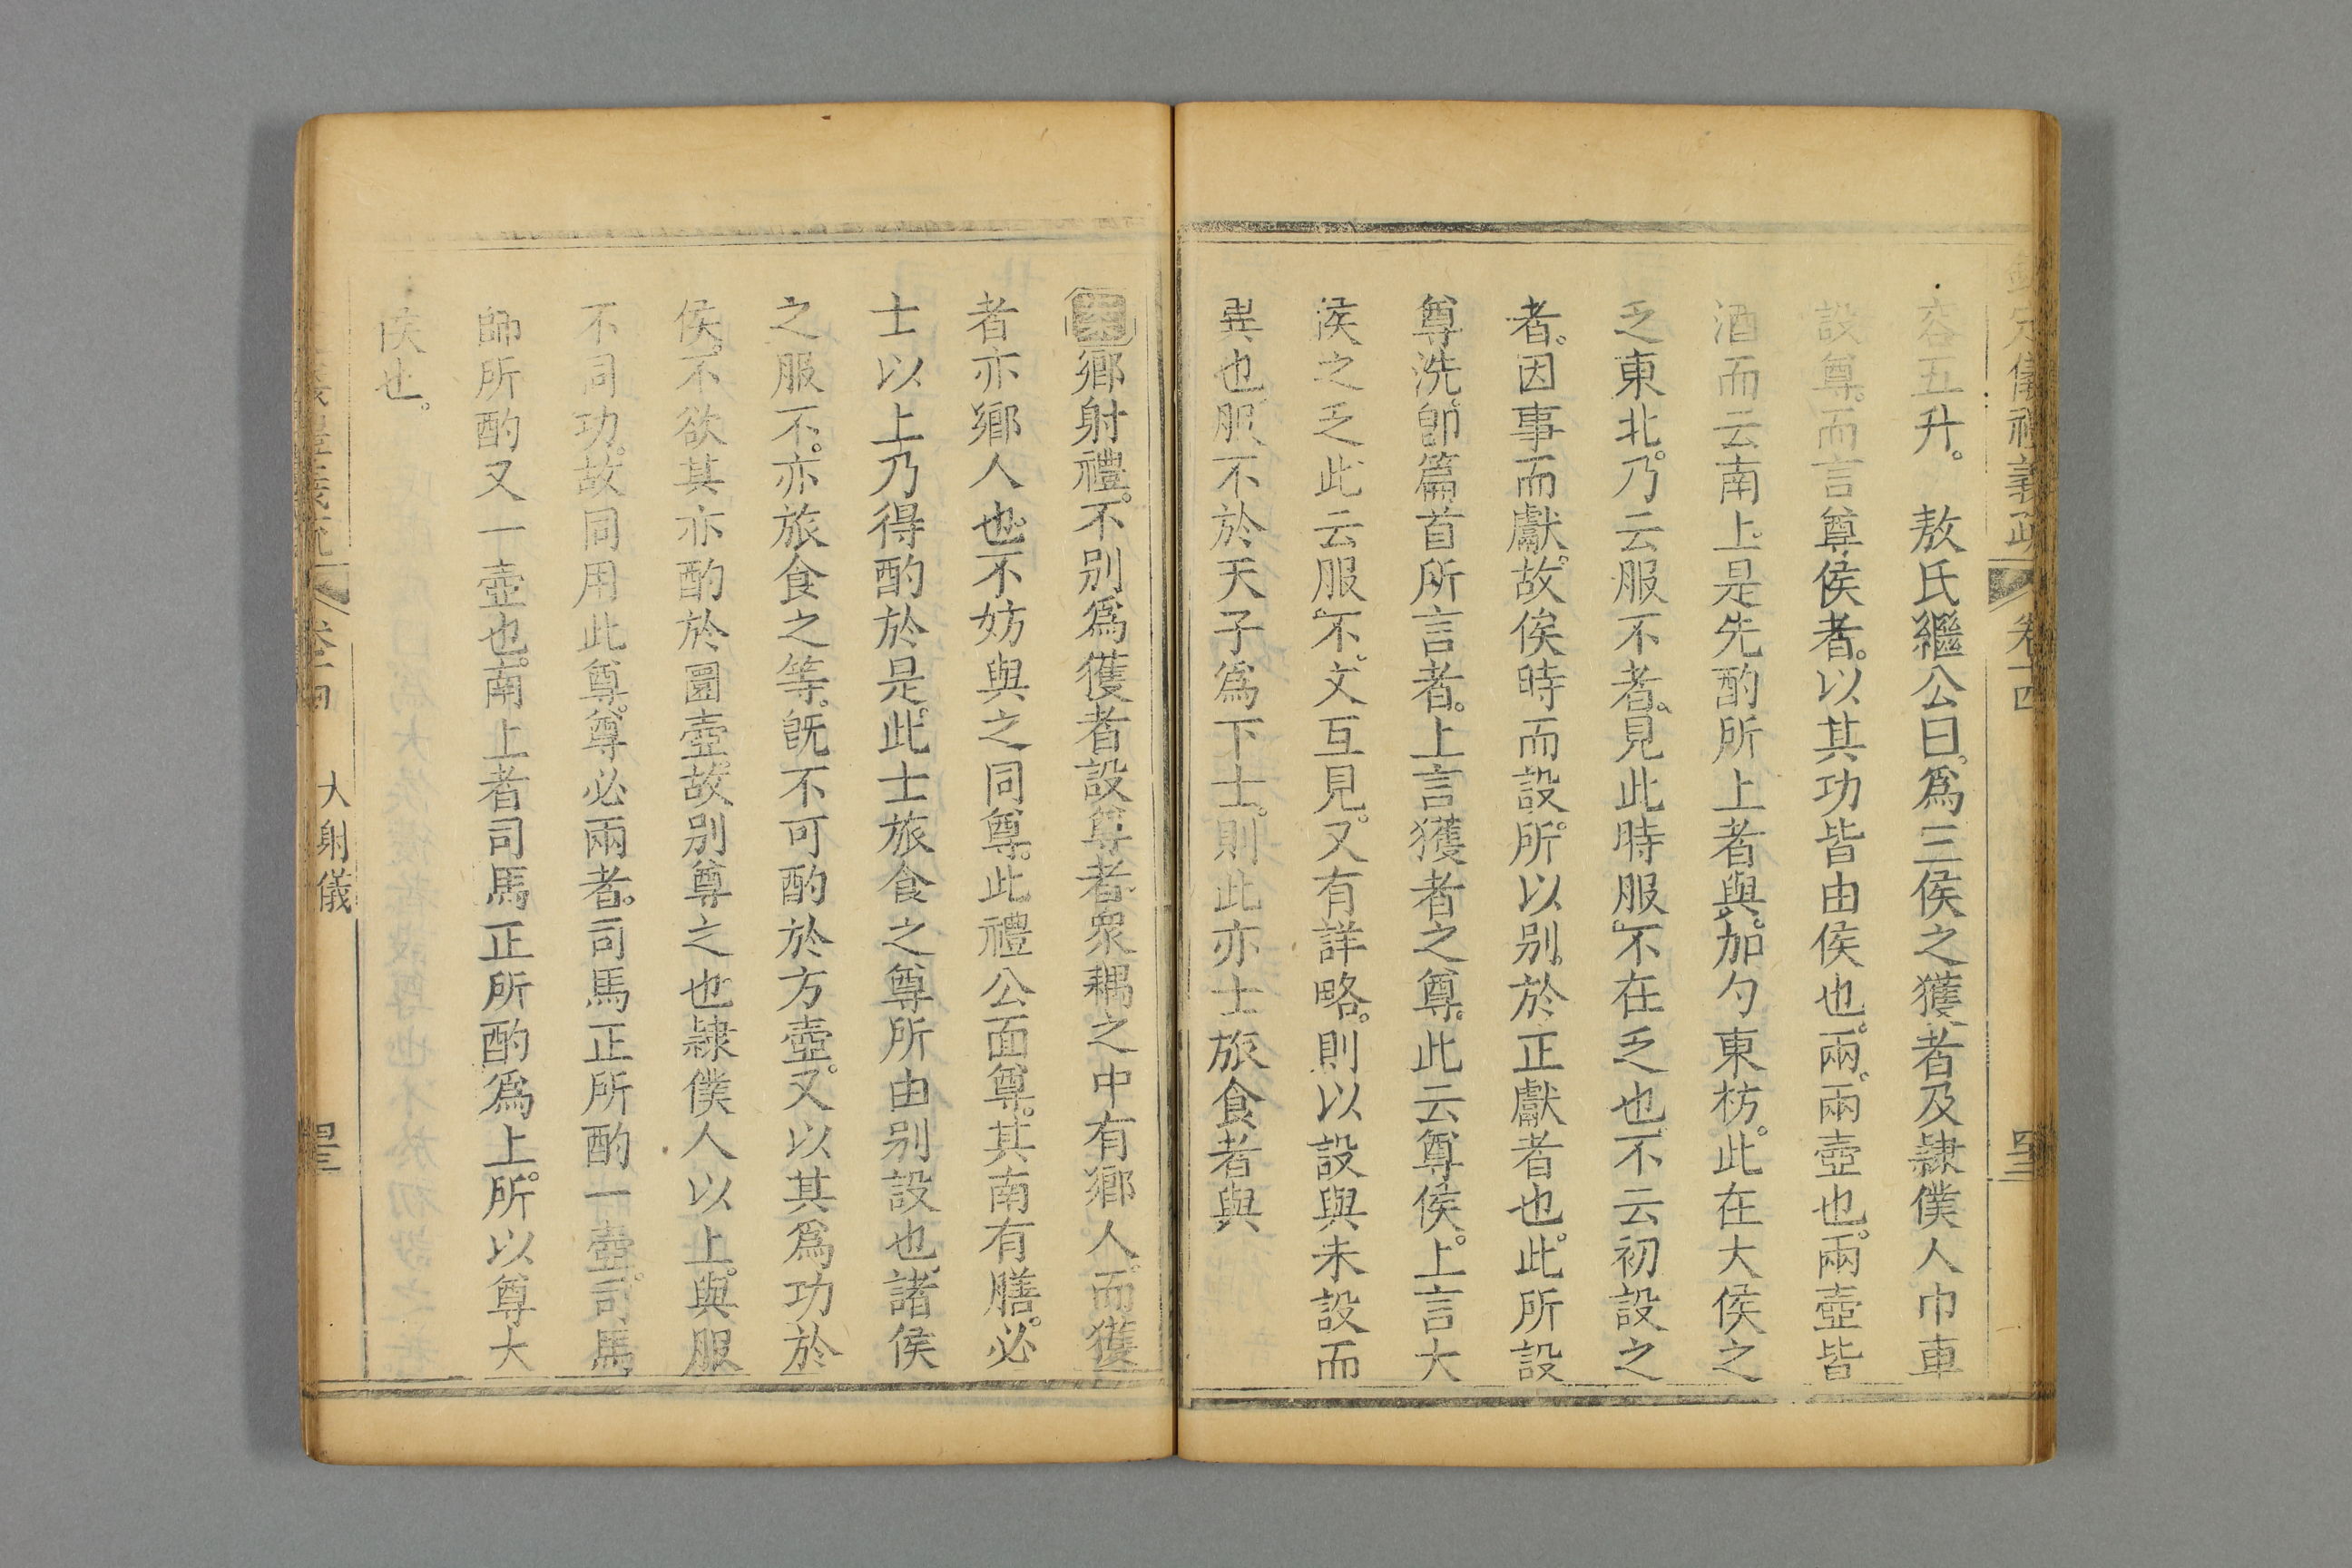 欽定儀禮義疏 卷十四
容五升。 敖氏繼公曰。爲三侯之獲者及隷僕人巾車
設尊。而言尊侯者。以其功皆由侯也。兩。兩壺也。兩壺皆
酒而云南上。是先酌所上者與。加勺東枋。此在大侯之
乏東北。乃云服不者。見此時服不在乏也。不云初設之
者。因事而獻。故俟時而設。所以别於正獻者也。此所設
尊洗。卽篇首所言者。上言獲者之尊。此云尊侯。上言大
侯之乏。此云服不。文互見。又有詳略。則以設與未設而
異也。服不於天子爲下士。則此亦士旅食者與
鄉射禮。不别爲獲者設尊者。衆耦之中有鄉人。而獲
者亦鄉人也。不妨與之同尊。此禮公面尊。其南有膳。必
士以上乃得酌於是。此士旅食之尊所由别設也。諸侯
之服不。亦旅食之等。旣不可酌於方壺。又以其爲功於
侯。不欲其亦酌於圜壺。故别尊之也。隷僕人以上。與服
不同功。故同用此尊。尊必兩者。司馬正所酌一壺。司馬
師所酌又一壺也。南上者。司馬正所酌爲上。所以尊大
侯也。
大射儀